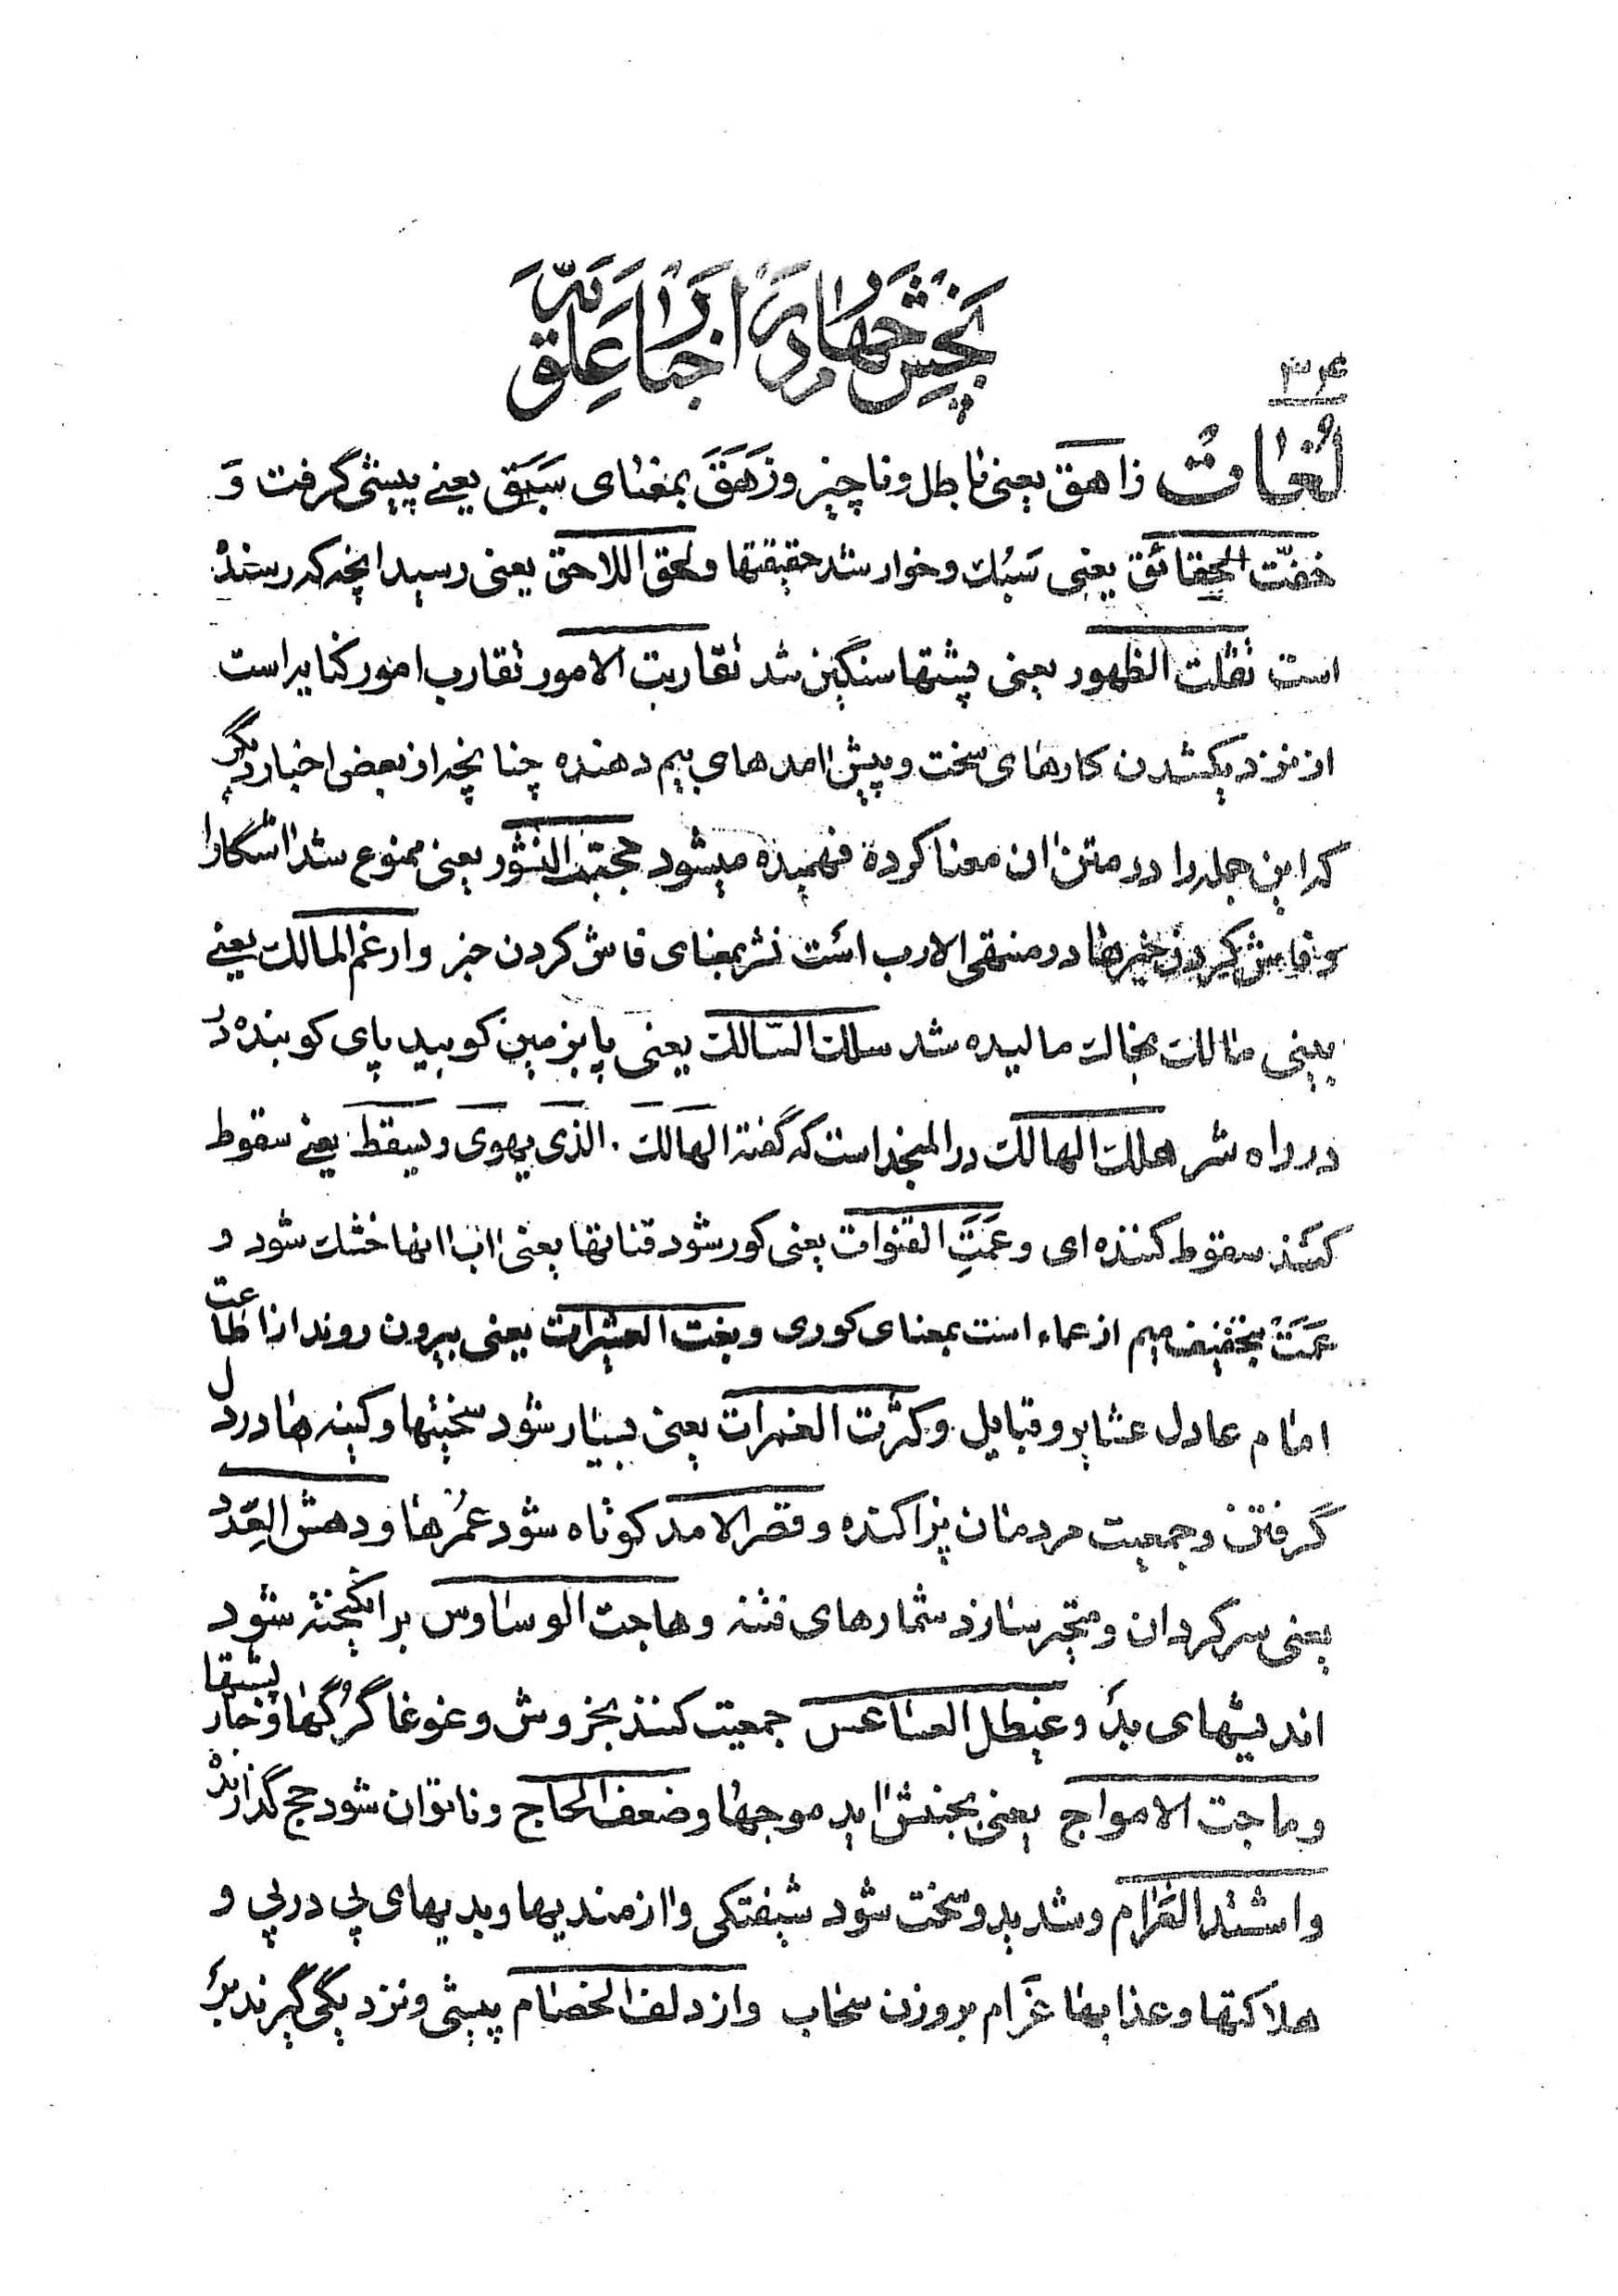 بخش چهارم در اخبار علویه
۳۰۴
لغات زاهق یعنی باطل و ناچیز و زَهَقَ بمعنای سَبَقَ یعنے پیشی گرفت وَ
خفّت الحقائق یعنی سَبُك و خوار شد حقیقتها و لحق اللاحق یعنی رسید انچه که رسنده
است ثقلت الظهور یعنی پشتها سنگین شد تقاربت الامور تقارب امور کنایه است
از نزدیکشدن کارهای سخت و پیش امدهای بیم دهنده چنانچه از بعض اخبار دیگر
که این جمله را در متن ان معنا کرده فهمیده میشود حجبت النشور یعنی ممنوع شد اشکارا
و فاش کردن خبرها در منتهی الارب است نشر بمعنای فاش کردن خبر و ارغم المالك یعنے
بینی مالك بخاك مالیده شد سلك السّالك یعنی پا بزمین کوبید پای کوبنده دَر
در راه شر هلك الهالك در المنجد است که گفته الهالك الذی یهوی و یسقط یعنے سقوط
کند سقوط کننده ای و عَمَتِ القنوات یعنی کور شود قناتها یعنی اب انها خشك شود و
عَمَتْ بتخفیف میم از عماء است بمعنای کوری و بغت العشیرات یعنی بیرون روند از اطاعت
امام عادل عشایر و قبایل و کثرت الغمرات یعنی بسیار شود سختیها و کینه ها در دل
گرفتن و جمعیت مردمان پراکنده و قصر الامد کوتاه شود عمُرها و دهش العِدَدُ
یعنی سرگردان و متحیر سازد شمارهای فتنه و هاجت الوساوس برانگیخته شود
اندیشهای بد و عیطل العساعس جمعیت کنند بخروش و غوغا گرُگها و خارپشتها
و ماجت الامواج یعنی بجنبش اید موجها و ضعف الحاج و ناتوان شود حج گذارنده
و اشتد الغَرام و شدید و سخت شود شیفتکی و ازمندیها و بدیهای پی در پی و
هلاکتها و عذابها غَرام بروزن سحاب و ازدلف الخصام پیشی و نزدیکی گیرند برا